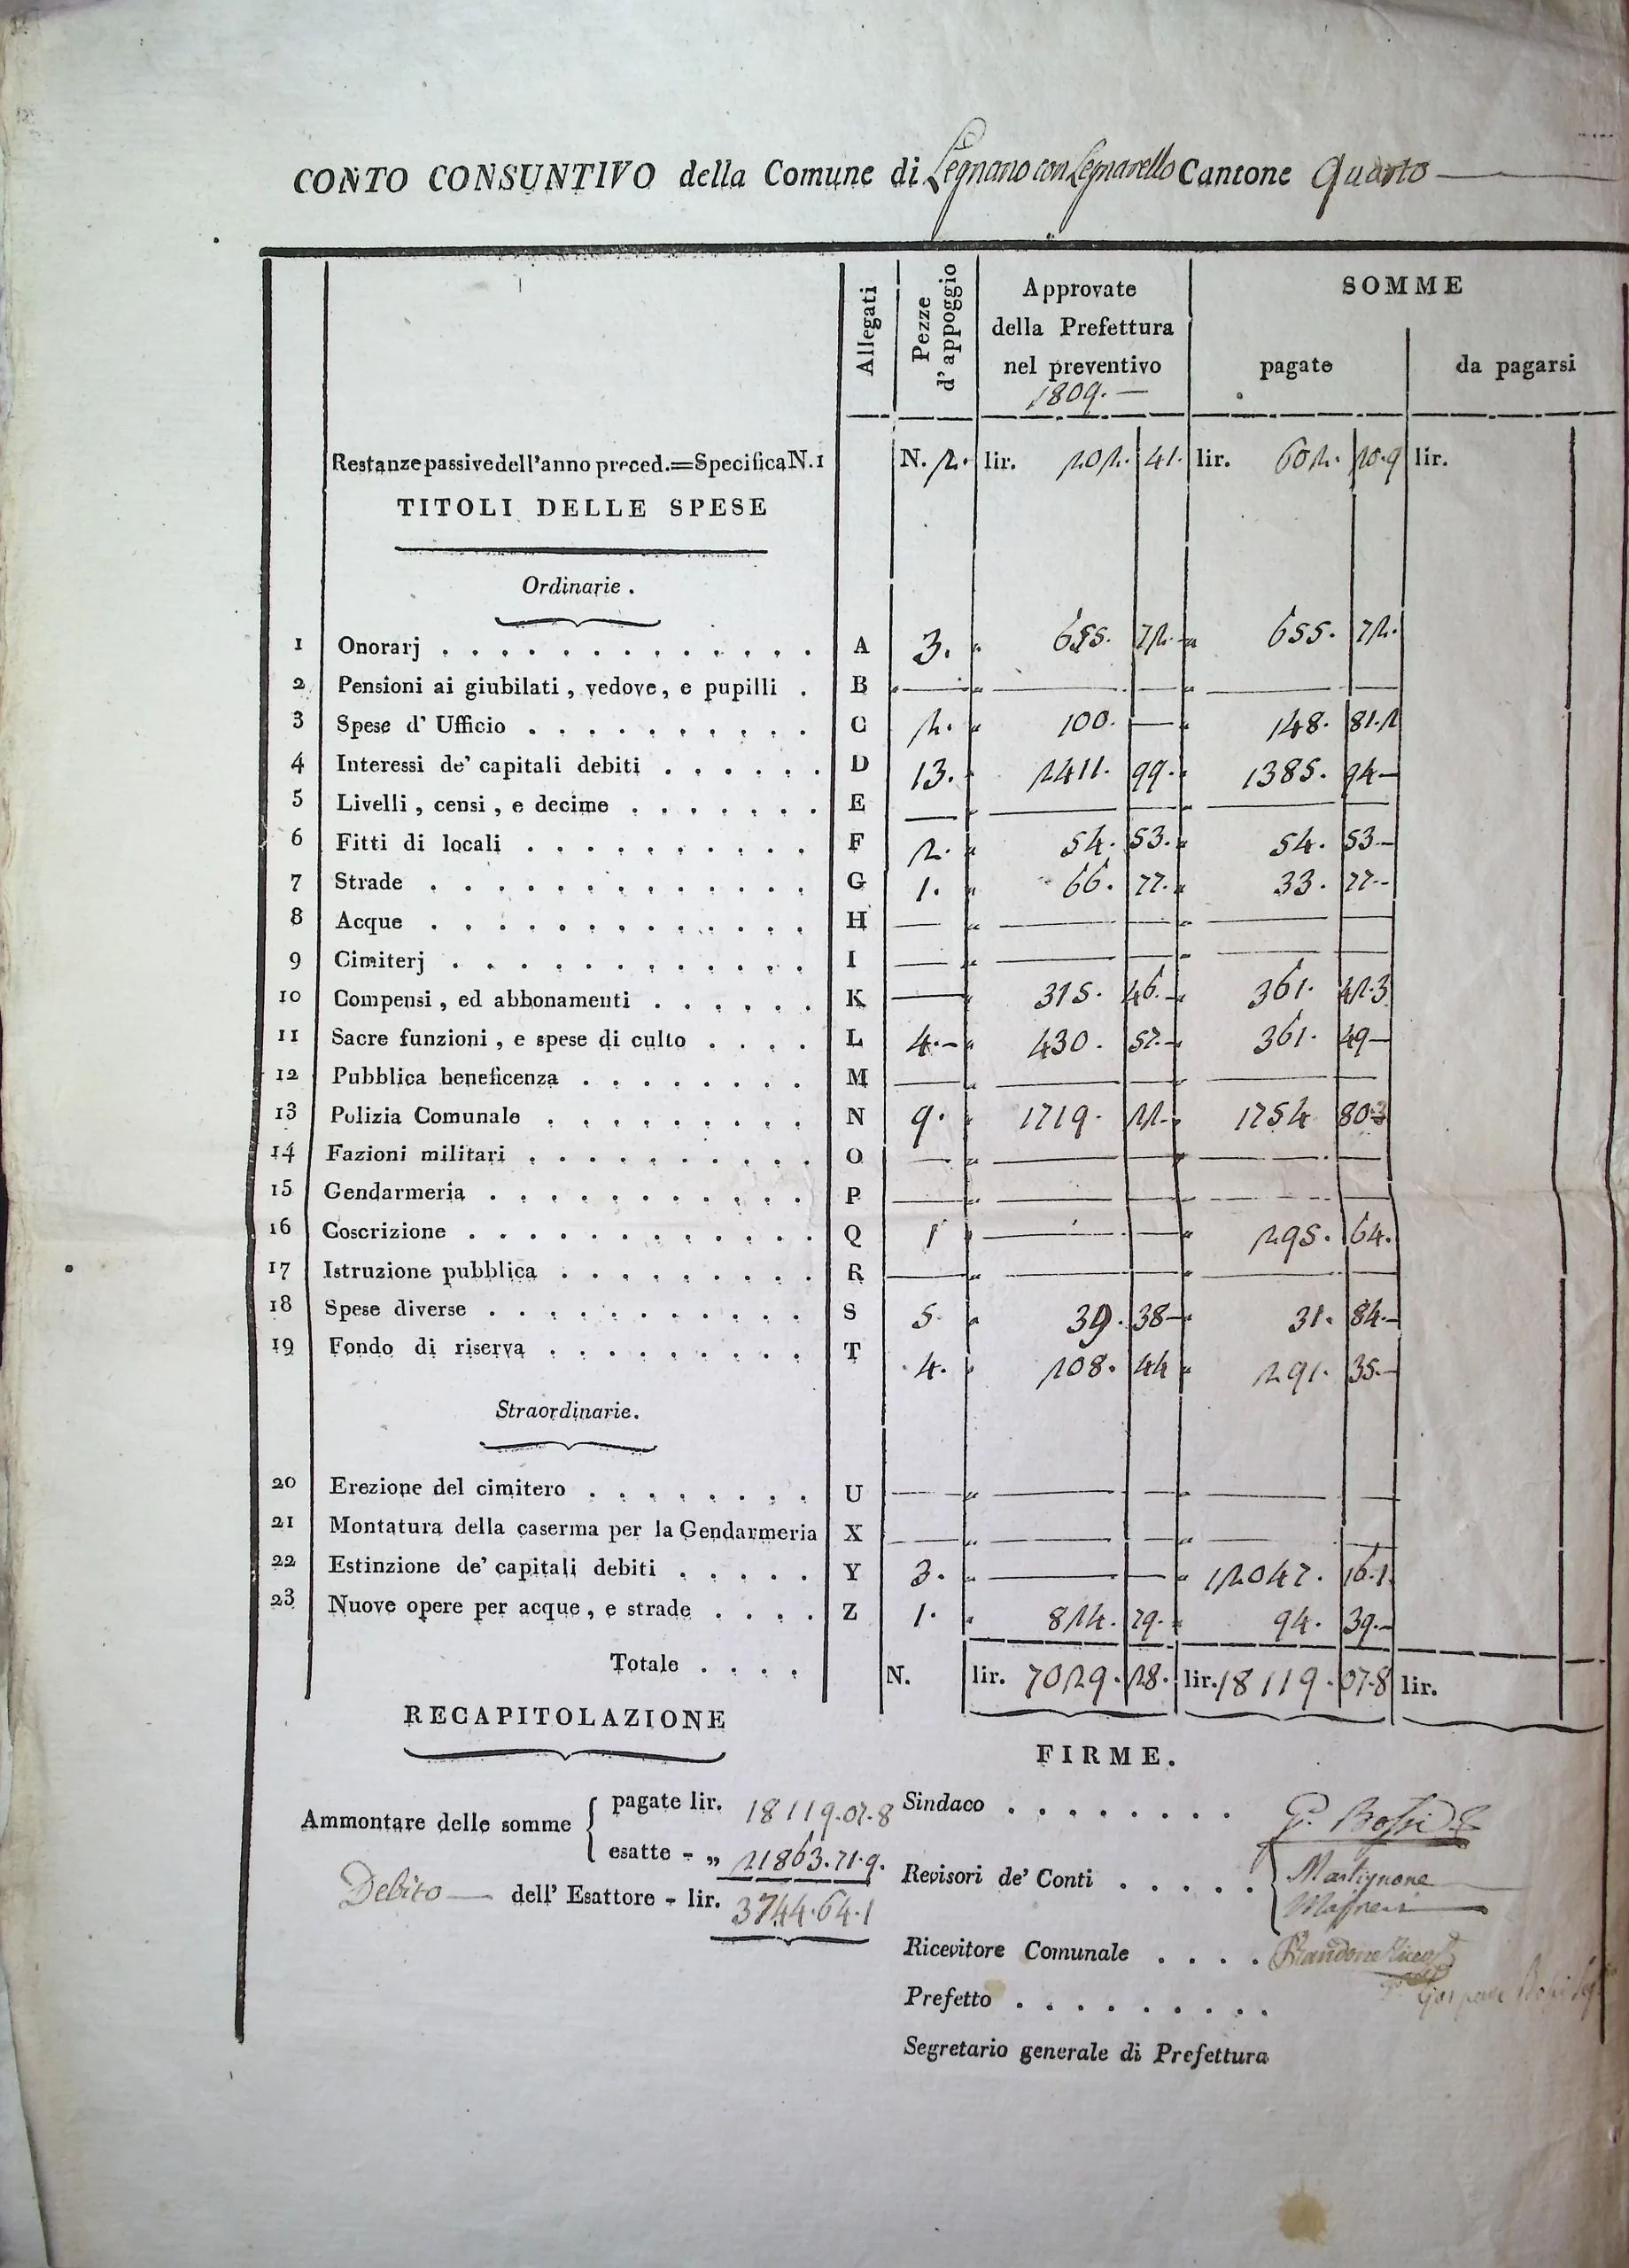 CONTO CONSUNTIVO della Comune di Legnano con Legnarello Cantone Quarto
Allegati
Pezze d' appoggio
Approvate della Prefettura nel preventivo 1809.
SOMME
pagate
da pagarsi
Restanze passive dell'anno preced.=Specifica N. 1 N. 2. lir. 202. 41. lir. 602. 20.9 lir.
TITOLI DELLE SPESE
Ordinarie.
1 Onorarj A 3. „ 655. 72. „ 655. 72.
2 Pensioni ai giubilati, vedove, e pupilli B — „ — — „ — —
3 Spese d' Ufficio C 2. „ 100. — „ 148. 81.2
4 Interessi de' capitali debiti D 13. „ 2411. 99. „ 1385. 94
5 Livelli, censi, e decime E — „ — — „ — —
6 Fitti di locali F 2. „ 54. 53. „ 54. 53
7 Strade G 1. „ 66. 77. „ 33. 77
8 Acque H — „ — — „ — —
9 Cimiterj I — „ — — „ — —
10 Compensi, ed abbonamenti K — „ 315. 46. „ 361. 42.3
11 Sacre funzioni, e spese di culto L 4. „ 430. 57. „ 361. 49
12 Pubblica beneficenza M — „ — — „ — —
13 Polizia Comunale N 9. „ 1719. 22. „ 1754 80.3
14 Fazioni militari O — „ — — „ — —
15 Gendarmeria P — „ — — „ — —
16 Coscrizione Q 1 „ — — „ 295. 64.
17 Istruzione pubblica R — „ — — „ — —
18 Spese diverse S 5. „ 39. 38 „ 31. 84.
19 Fondo di riserva T 4. „ 208. 44 „ 291. 35.
Straordinarie.
20 Erezione del cimitero U — „ — — „ — —
21 Montatura della caserma per la Gendarmeria X — „ — — „ — —
22 Estinzione de' capitali debiti Y 3. „ — — „ 12047. 16.1
23 Nuove opere per acque, e strade Z 1. „ 824. 79. „ 94. 39.
Totale N. lir. 7029. 28. lir. 18119. 07.8 lir.
RECAPITOLAZIONE
Ammontare delle somme
pagate lir. 18119.07.8
esatte - „ 21863.71.9.
Debito — dell' Esattore - lir. 3744.64.1
FIRME.
Sindaco G. Bossi
Revisori de' Conti Martignone
Ricevitore Comunale
Prefetto
Segretario generale di Prefettura